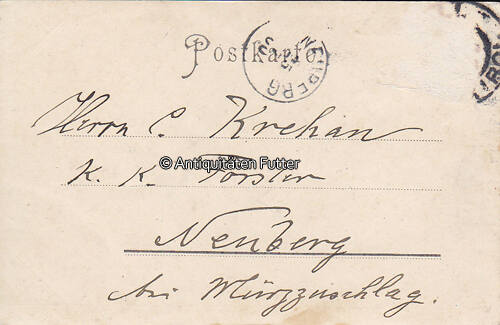 Postkarte
NEUBERG
Herrn C. Krehan
K. K. Förster
© Antiquitäten Futter
Neuberg
bei Mürzzuschlag.